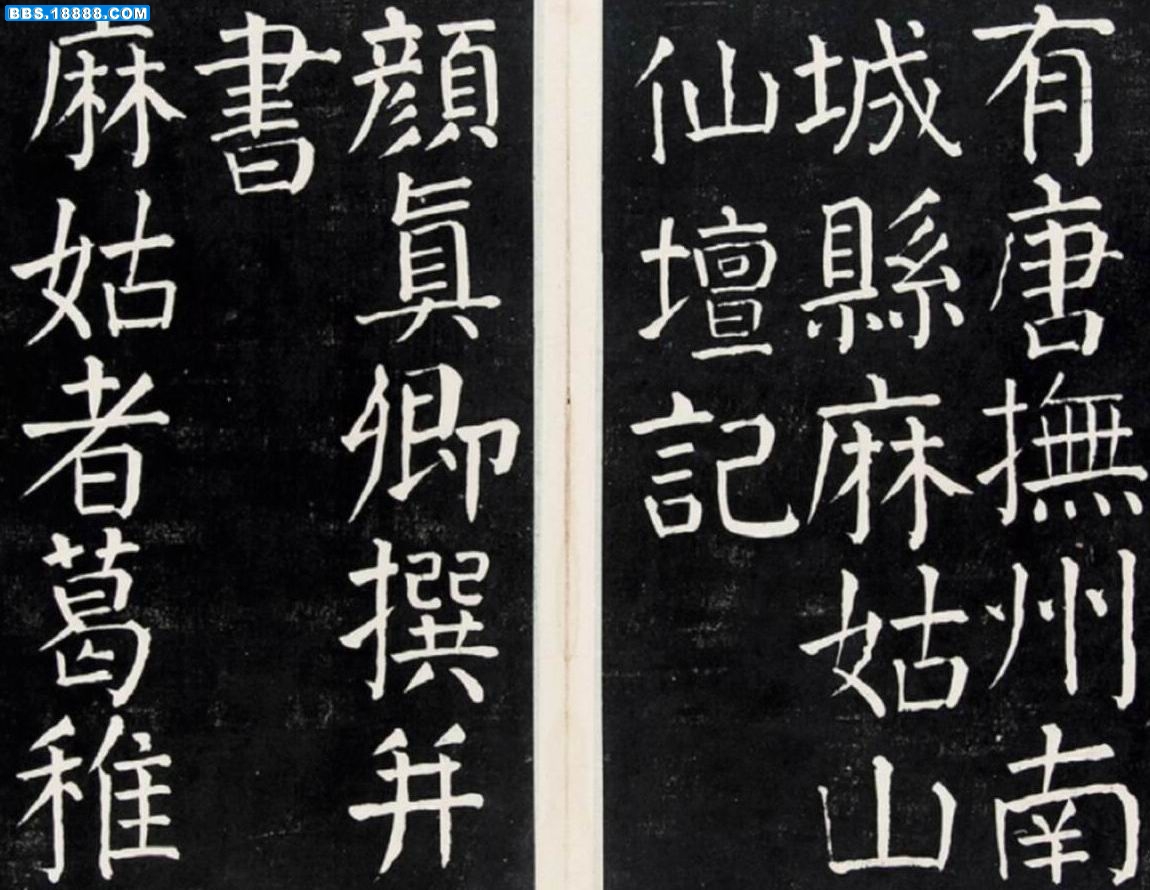 有唐撫州南
城縣麻姑山
仙壇記
顏眞卿撰并
書
麻姑者葛稚
BBS.18888.COM